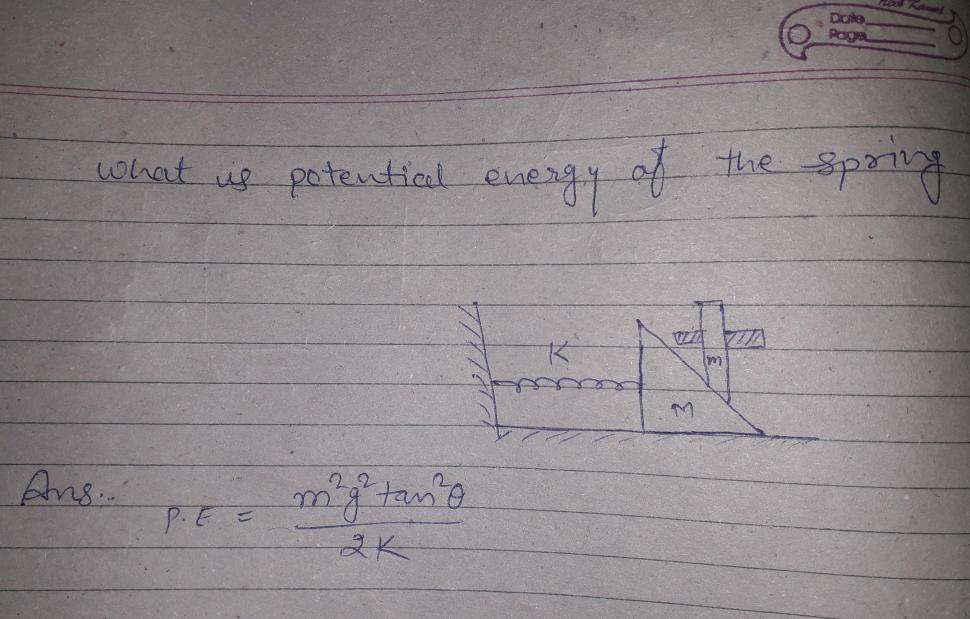 Date
Page
What is potential energy of the spring
K
m
M
Ans:-
P.E = m²g²tan²θ / 2K